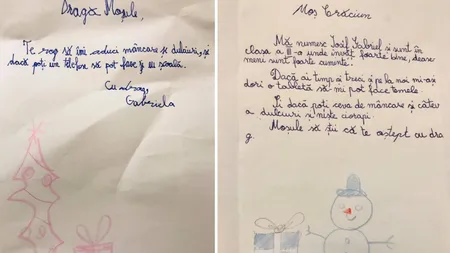 Dragă Moșule,
Te rog să îmi aduci mâncare și dulciuri, și
dacă poți un telefon să pot face și eu școală.
Cu drag,
Gabriela
Moș Crăciun
Mă numesc Iosif Gabriel și sunt în
clasa a III-a unde învăț foarte bine, dease
meni sunt foarte cuminte.
Dacă ai timp și treci și pe la noi mi-aș
dori o tabletă să mi pot face temele.
Și dacă poți ceva de mâncare și câtev
a dulciuri și niște ciorapi.
Moșule să știi că te aștept cu dra
g.